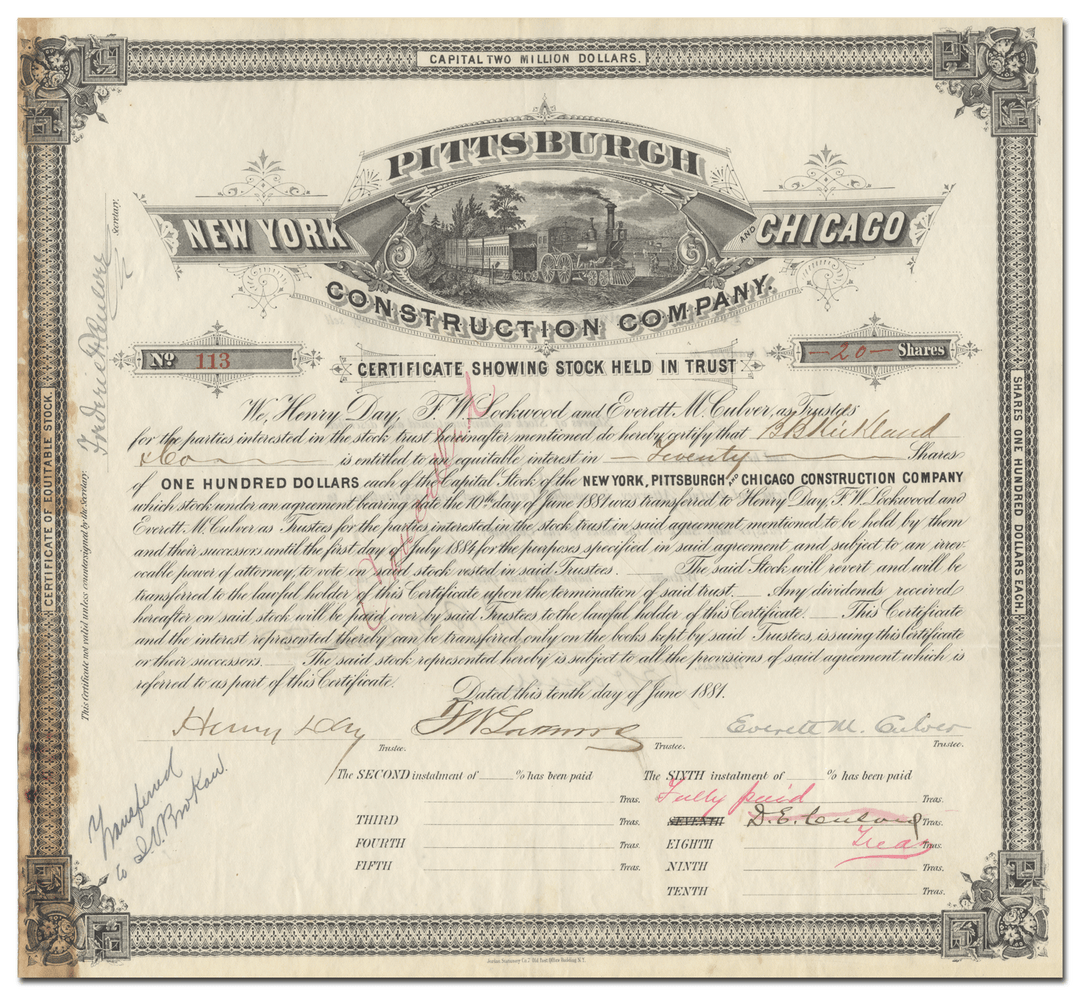 CAPITAL TWO MILLION DOLLARS.
PITTSBURGH
NEW YORK
AND CHICAGO
CONSTRUCTION COMPANY.
No 113
CERTIFICATE SHOWING STOCK HELD IN TRUST
—20— Shares
We, Henry Day, F. W. Lockwood and Everett M. Culver, as Trustees
for the parties interested in the stock trust hereinafter mentioned do hereby certify that B B Kirkland
& Co is entitled to an equitable interest in — Twenty — Shares
of ONE HUNDRED DOLLARS each of the Capital Stock of the NEW YORK, PITTSBURGH AND CHICAGO CONSTRUCTION COMPANY
which stock under an agreement bearing date the 10th day of June 1881 was transferred to Henry Day, F. W. Lockwood and
Everett M. Culver as Trustees for the parties interested in the stock trust in said agreement mentioned to be held by them
and their successors until the first day of July 1884 for the purposes specified in said agreement and subject to an irrev
ocable power of attorney, to vote on said stock vested in said Trustees. The said Stock will revert and will be
transferred to the lawful holder of this Certificate upon the termination of said trust. Any dividends received
hereafter on said stock will be paid over by said Trustees to the lawful holder of this Certificate. This Certificate
and the interest represented thereby can be transferred only on the books kept by said Trustees, issuing this Certificate
or their successors. The said stock represented hereby is subject to all the provisions of said agreement which is
referred to as part of this Certificate.
Dated this tenth day of June 1881.
Cancelled
Henry Day
Trustee.
Trustee.
Everett M. Culver
Trustee.
The SECOND instalment of % has been paid
Treas.
THIRD Treas.
FOURTH Treas.
FIFTH Treas.
The SIXTH instalment of % has been paid
Fully paid Treas.
SEVENTH D. E. Culver Treas.
EIGHTH Treas Treas.
NINTH Treas.
TENTH Treas.
CERTIFICATE OF EQUITABLE STOCK.
This Certificate not valid unless countersigned by the Secretary.
Secretary.
SHARES ONE HUNDRED DOLLARS EACH.
Transferred
to I. V. Brokaw.